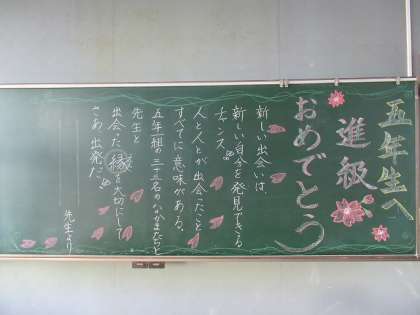 五年生へ
進級
おめでとう
新しい出会いは
新しい自分を発見できる
チャンス。
人と人とが出会ったこと
すべてに意味がある。
五年一組の三十三名のなかまたちと
先生と
出会った縁を大切にして
さあ、出発だ。
先生より